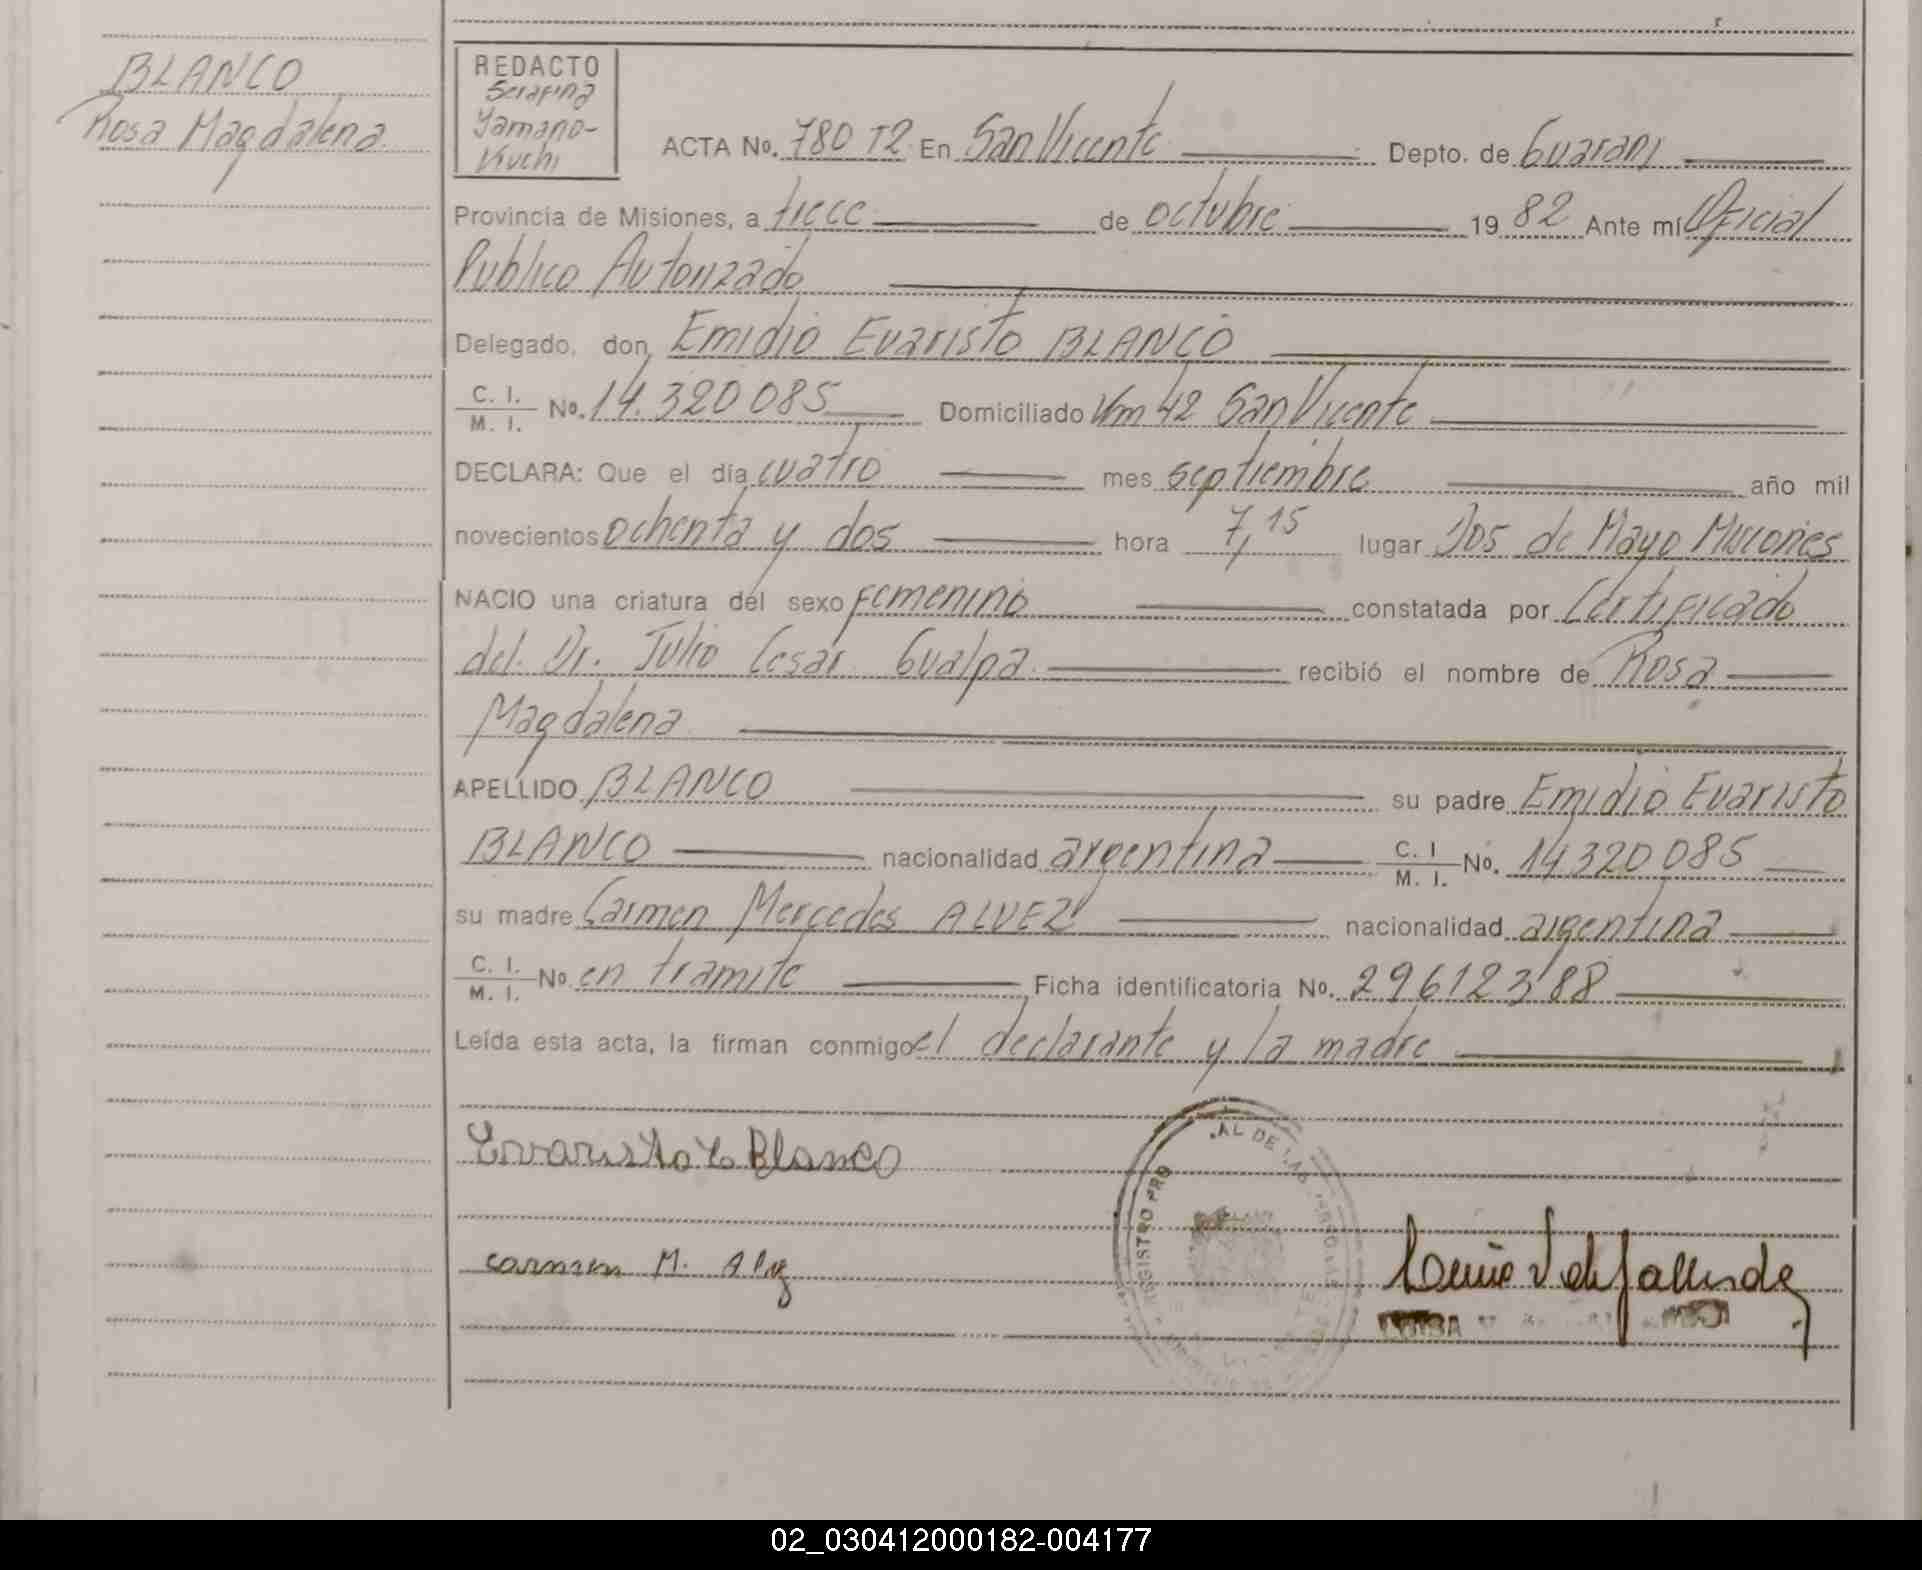 BLANCO
Rosa Magdalena
REDACTO
Serafina
Yamano-
Kiuchi
ACTA No. 780 T2 En San Vicente Depto. de Guarani
Provincia de Misiones, a trece de octubre 1982 Ante mí Oficial
Publico Autorizado
Delegado, don Emidio Evaristo BLANCO
C. I. / M. I. No. 14.320 085 Domiciliado Km 42 San Vicente
DECLARA: Que el día cuatro mes septiembre año mil
novecientos ochenta y dos hora 7,15 lugar Dos de Mayo Misiones
NACIO una criatura del sexo femenino constatada por Certificado
del Dr. Julio Cesar Gualpa recibió el nombre de Rosa
Magdalena
APELLIDO BLANCO su padre Emidio Evaristo
BLANCO nacionalidad argentina C. I. / M. I. No. 14320 085
su madre Carmen Mercedes ALVEZ nacionalidad argentina
C. I. / M. I. No en tramite Ficha identificatoria No. 29612388
Leída esta acta, la firman conmigo el declarante y la madre
Evaristo E Blanco
AL DE LAS PERSONAS
REGISTRO PRO
Carmen M. Alvez
LUISA
02_030412000182-004177